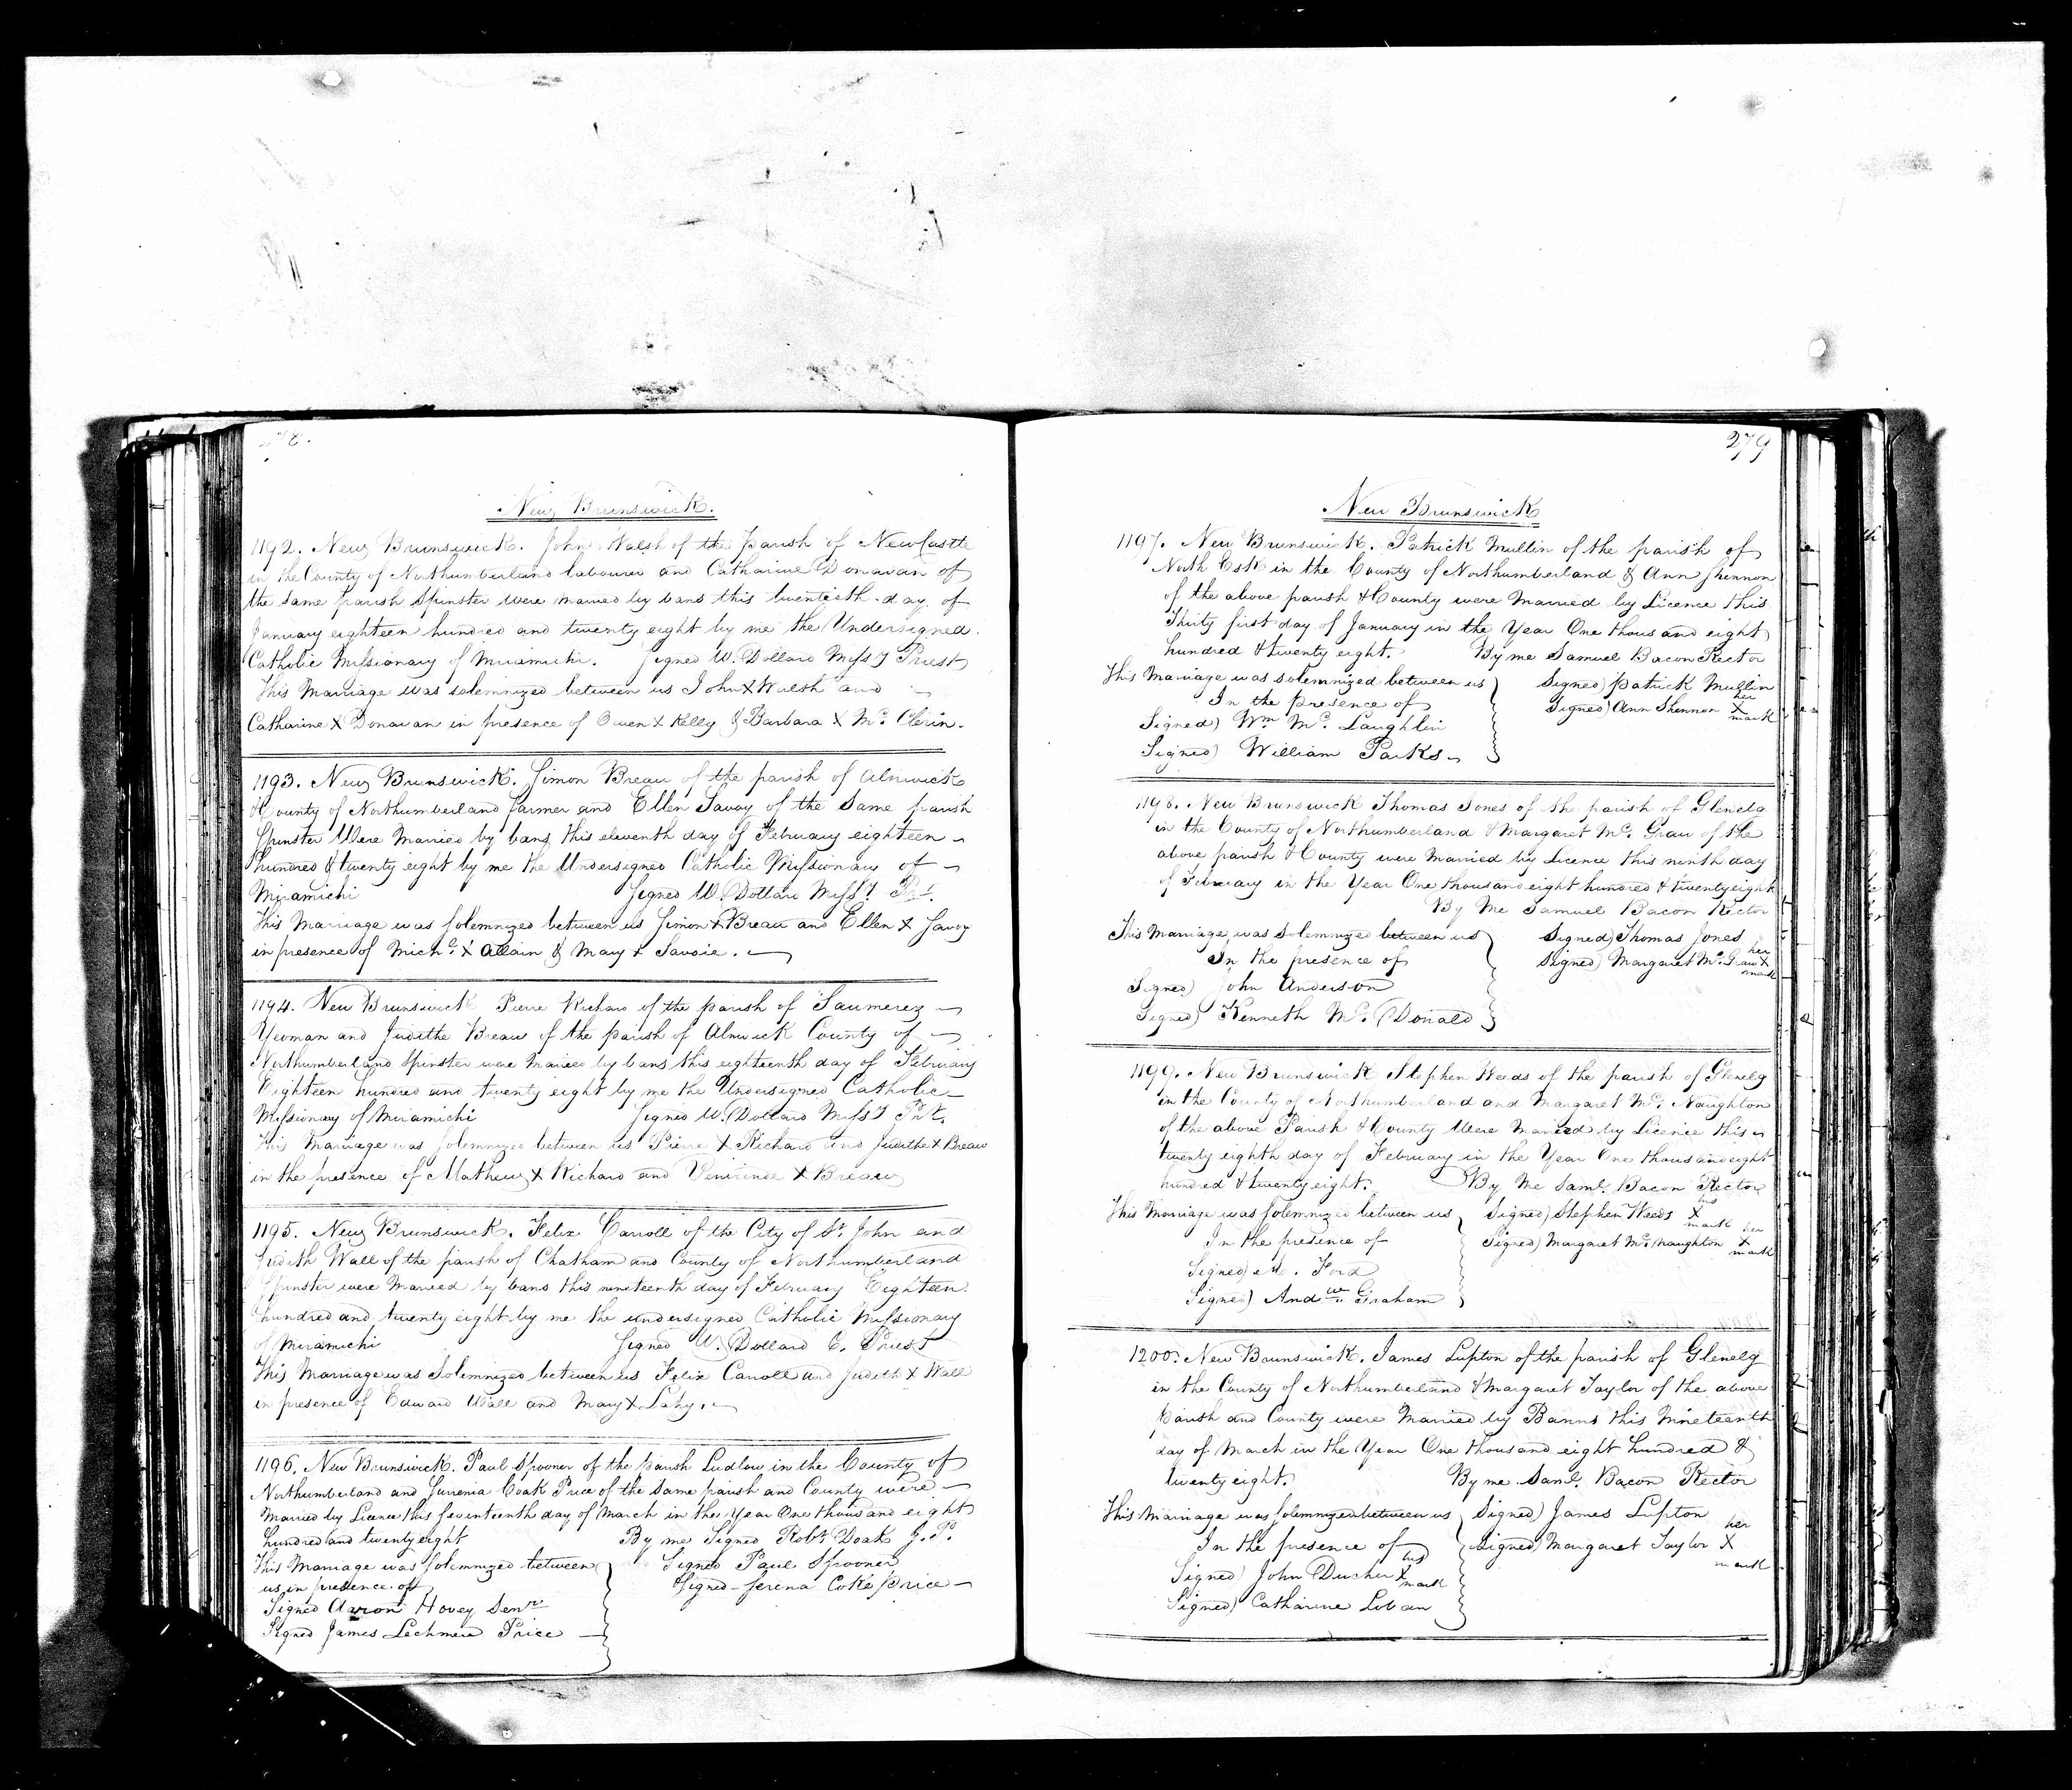 278.
New Brunswick.
1192. New Brunswick. John Walsh of the parish of NewCastle
in the County of Northumberland labourer and Catharine Donavan of
the same parish Spinster were married by bans this twentieth day of
January eighteen hundred and twenty eight by me the Undersigned
Catholic Missionary of Miramichi. Signed W. Dollard Missy Priest
This Marriage was solemnized between us John X Walsh and
Catharine X Donavan in presence of Owen X Kelly & Barbara X Mc.
1193. New Brunswick. Simon Breau of the parish of Alnwick
& County of Northumberland farmer and Ellen Savoy of the Same parish
Spinster Were Married by bans this eleventh day of February eighteen
hundred & twenty eight by me the Undersigned Catholic Missionary of
Miramichi Signed W. Dollard Missy Pst.
This Marriage was solemnized between us Simon X Breau and Ellen X Savoy
in presence of Michl. X Allain & Mary X Savoie.
1194. New Brunswick Pierre Richard of the parish of Saumerez
Yeoman and Judithe Breau of the parish of Alnwick County of
Northumberland Spinster were married by bans this eighteenth day of February
Eighteen hundred and twenty eight by me the Undersigned Catholic
Missionary of Miramichi Signed W. Dollard Missy Pst.
This Marriage was solemnized between us Pierre X Richard and Judithe X Breau
in the presence of Mathew X Richard and X Breau
1195. New Brunswick. Felix Carroll of the City of St. John and
Judith Wall of the parish of Chatham and County of Northumberland
Spinster were Married by bans this nineteenth day of February Eighteen
hundred and twenty eight by me the undersigned Catholic Missionary
of Miramichi Signed W. Dollard C. Priest
This Marriage was Solemnized between us Felix Carroll and Judith X Wall
in presence of Edward Wall and Mary X Lahy.
1196. New Brunswick. Paul Spooner of the parish Ludlow in the County of
Northumberland and Coak Price of the Same parish and County were
Married by Licence this seventeenth day of March in the Year One thousand eight
hundred and twenty eight By me Signed Robt. Doak J. P.
This Marriage was solemnized between Signed Paul Spooner
us in presence of Signed Serena Coke Price
Signed Aaron Hovey Senr.
Signed James Lechmere Price
279
New Brunswick
1197. New Brunswick. Patrick Mullin of the parish of
North Esk in the County of Northumberland & Ann Shennon
of the above parish & County were Married by Licence this
Thirty first day of January in the Year One thousand eight
hundred & twenty eight. By me Samuel Bacon Rector
This Marriage was solemnized between us Signed) Patrick Mullin
In the presence of Signed) Ann Shennon her X mark
Signed) Wm Mc. Laughlin
Signed) William Parks
1198. New Brunswick Thomas Jones of the parish of Glenelg
in the County of Northumberland & Margaret Mc. Graw of the
above parish & County were Married by Licence this ninth day
of February in the Year One thousand eight hundred & twenty eight
By Me Samuel Bacon Rector
This Marriage was Solemnized between us Signed) Thomas Jones
In the presence of Signed) Margaret Mc. Graw her X mark
Signed) John Anderson
Signed) Kenneth Mc. Donald
1199. New Brunswick Stephen Weeds of the parish of Glenelg
in the County of Northumberland and Margaret Mc. Naughton
of the above Parish & County Were Married by Licence this
twenty eighth day of February in the Year One thousand eight
hundred & twenty eight. By Me Saml. Bacon Rector
This Marriage was solemnized between us Signed) Stephen Weeds his X mark
In the presence of Signed) Margaret Mc. Naughton her X mark
Signed) M. Ford
Signed) Andw. Graham
1200. New Brunswick. James Lupton of the parish of Glenelg
in the County of Northumberland & Margaret Taylor of the above
parish and County were Married by Banns this Nineteenth
day of March in the Year One thousand eight hundred &
twenty eight. By me Saml. Bacon Rector
This Marriage was solemnized between us Signed) James Lupton
In the presence of Signed) Margaret Taylor her X mark
Signed) John Ducher his X mark
Signed) Catharine Loban